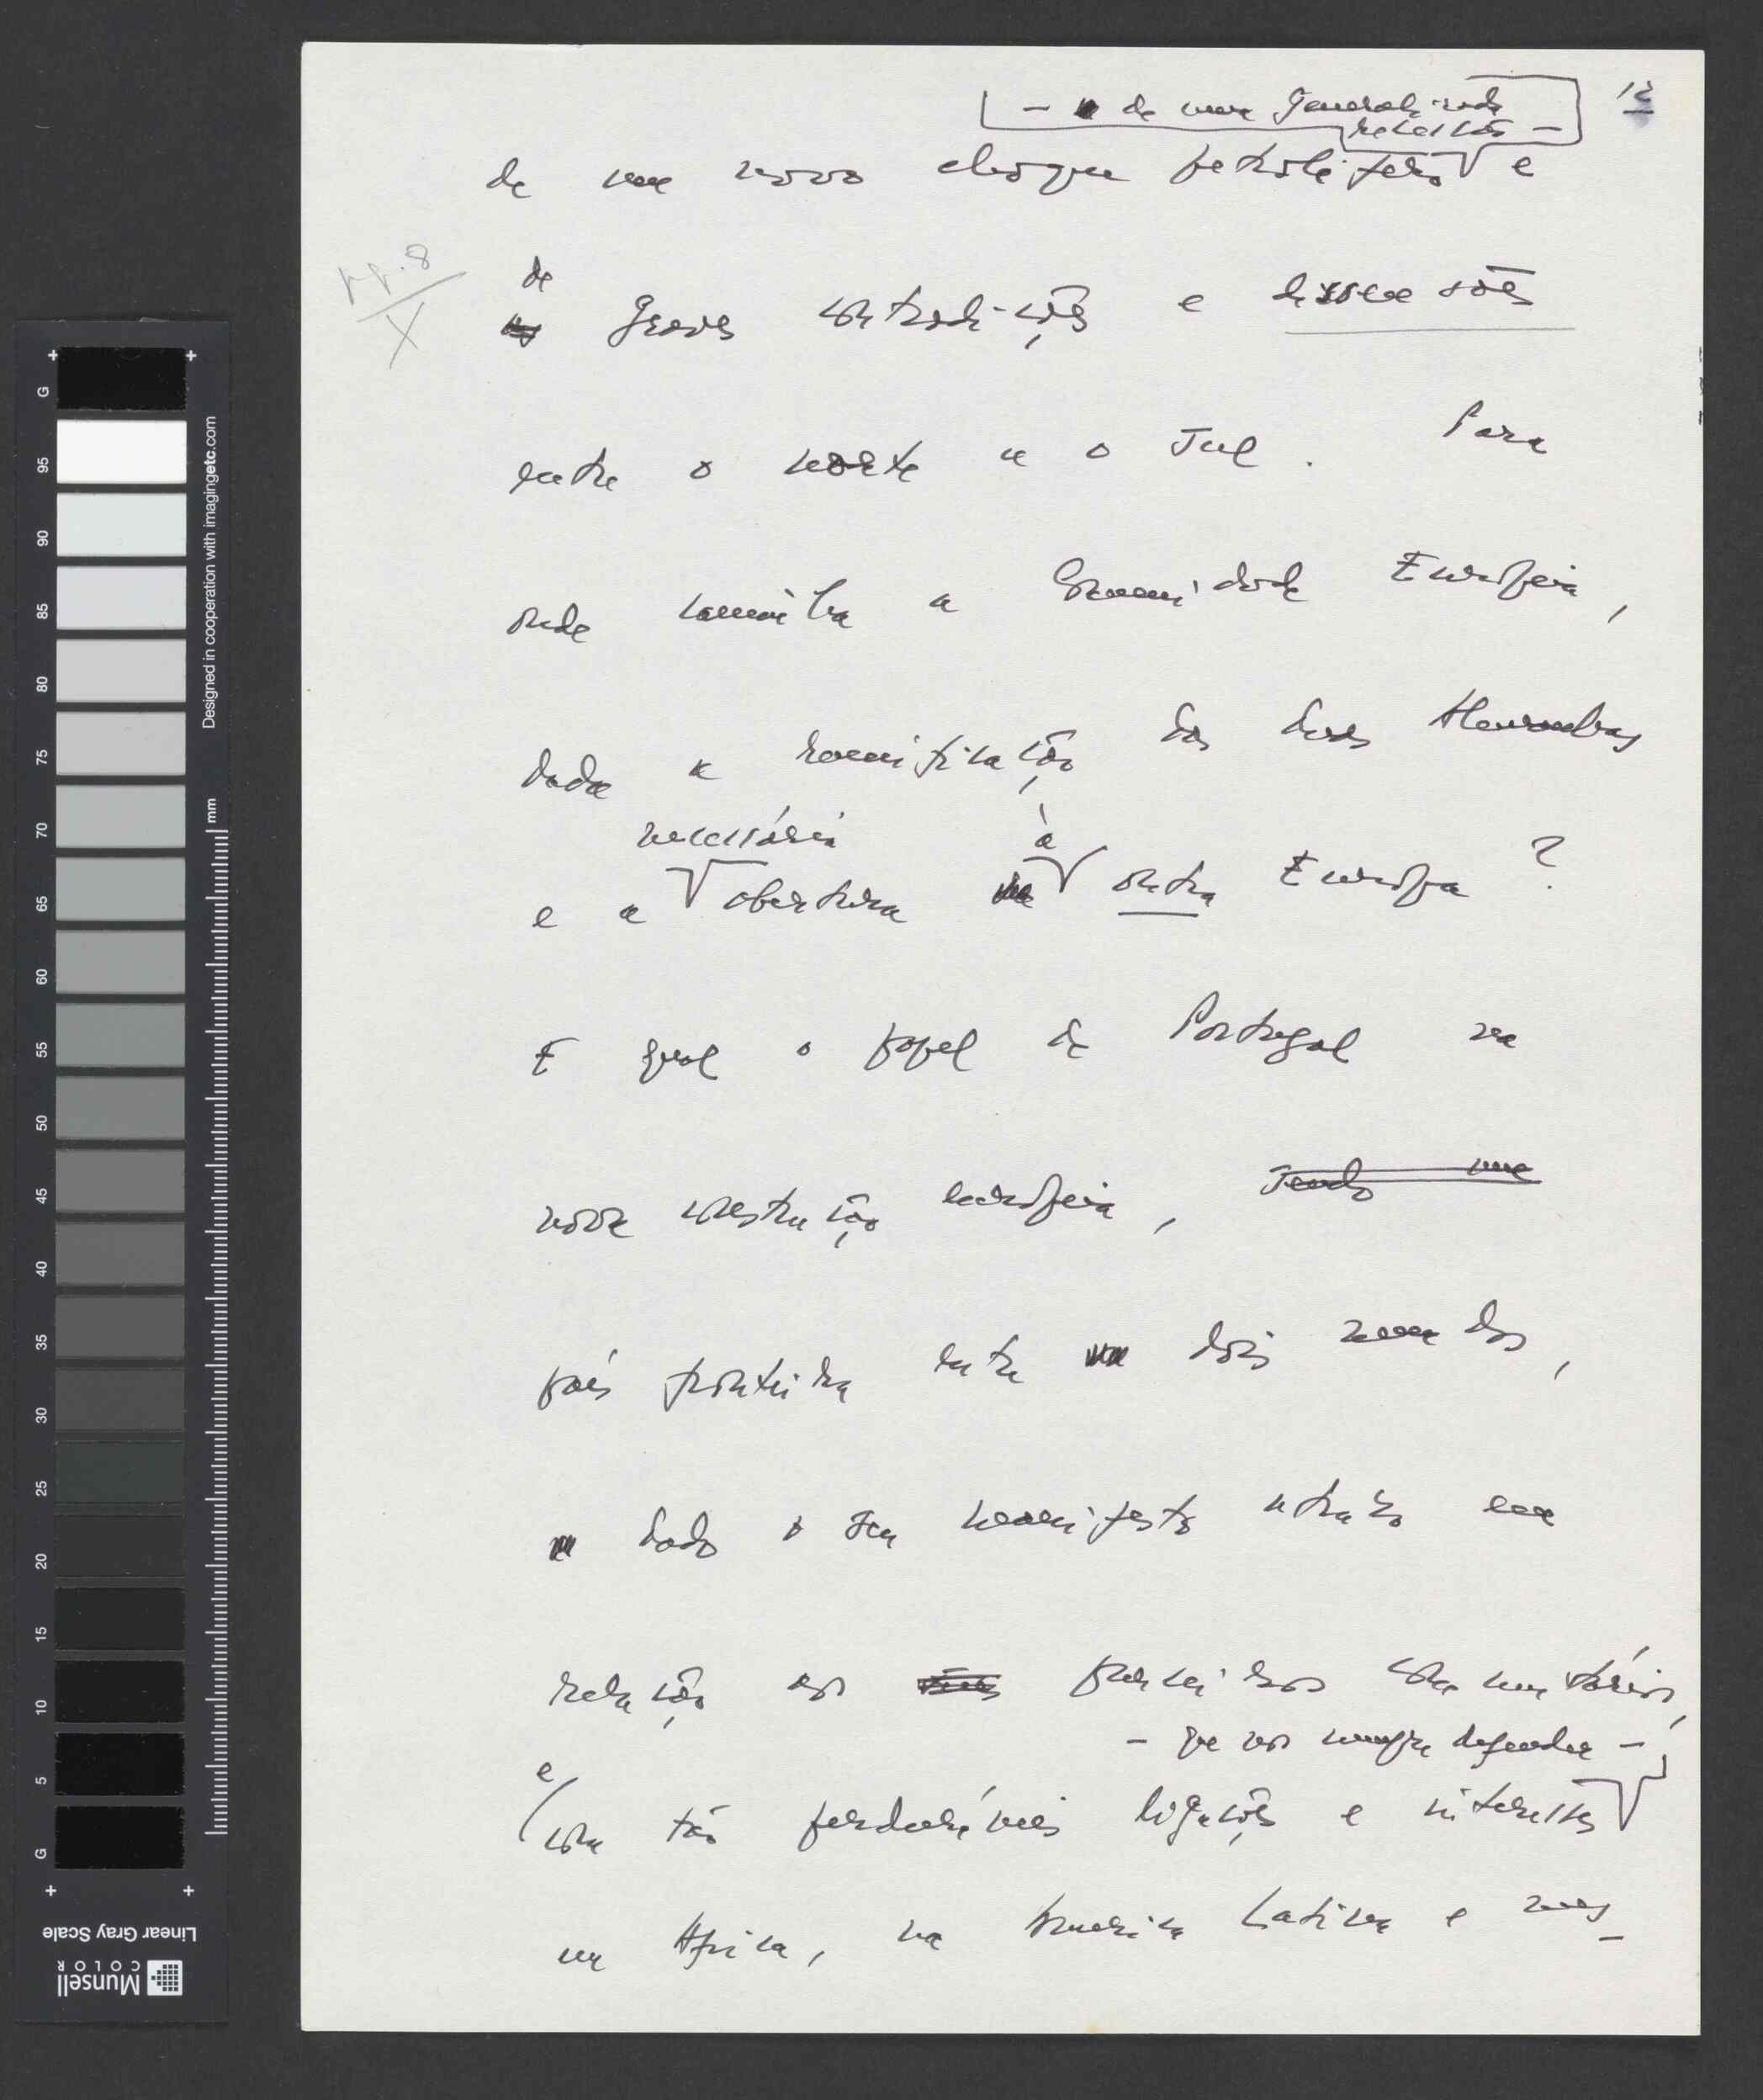 12
- de uma generalizada
recessão -
de um novo choque petrolífero e
pp. 8
X
de
graves contradições e dissensões
entre o norte e o Sul. Para
onde caminha a Comunidade Europeia,
dada a reunificação das duas Alemanhas
necessária à
e a abertura outra Europa?
E qual o papel de Portugal na
nova construção europeia, sendo um
país fronteira entre dois mundos,
dado o seu manifesto atraso em
relação aos parceiros comunitários,
- que nos cumpre defender -
e
com tão perduráveis ligações e interesses
em Africa, na America Latina e mes-
G
95
90
85
80
75
70
65
60
55
50
45
40
35
30
25
20
15
10
5
G
Designed in cooperation with imagingetc.com
mm
Linear Gray Scale
Munsell
COLOR